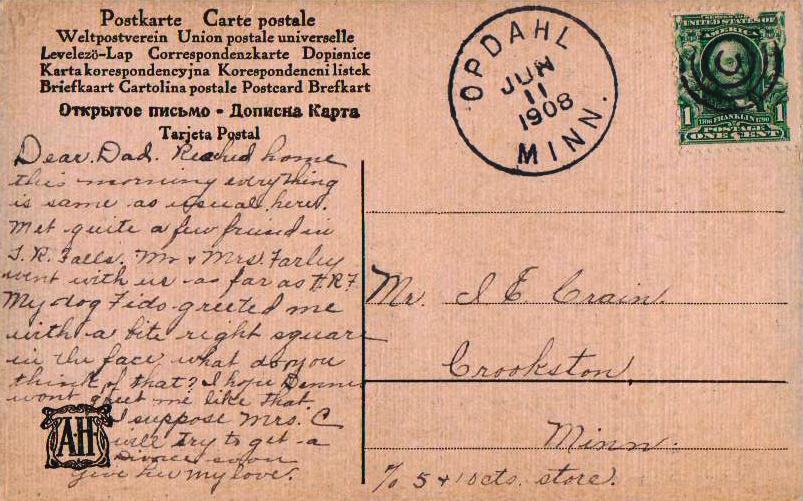 Postkarte Carte postale
Weltpostverein Union postale universelle
Levelezö-Lap Correspondenzkarte Dopisnice
Karta korespondencyjna Korespondencni listek
Briefkaart Cartolina postale Postcard Brefkort
Открытое письмо - Дописна Карта
Tarjeta Postal
OPDAHL
JUN
11
1908
MINN.
SERIES 1902
UNITED STATES OF
AMERICA
1706 FRANKLIN 1790
1 POSTAGE 1
ONE CENT
Dear Dad. Reached home
this morning everything
is same as usual here.
Met quite a few friend in
T. R. Falls. Mr & Mrs. Farley
went with us as far as T.R.F.
My dog Fido greeted me
with a bite right square
in the face what do you
think of that? I hope Dennis
wont greet me like that
I suppose Mrs. C
will try to get a
Divorce soon
Give her my love.
AH
Mr. I E. Crain.
Crookston
Minn.
% 5 & 10 cts. store.